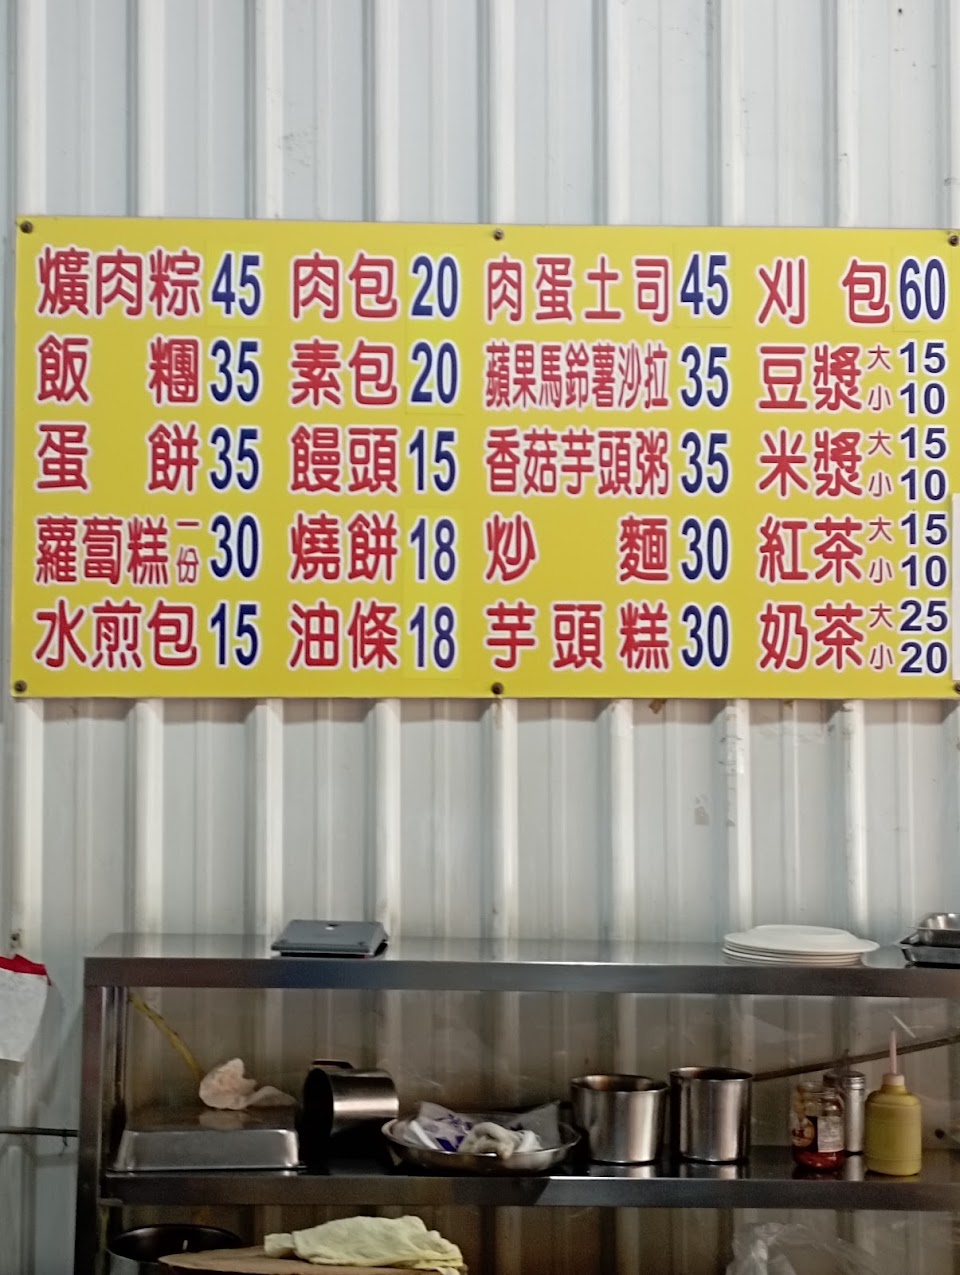 爌肉粽 45 肉包 20 肉蛋土司 45 刈包 60
飯糰 35 素包 20 蘋果馬鈴薯沙拉 35 豆漿 大 15 小 10
蛋餅 35 饅頭 15 香菇芋頭粥 35 米漿 大 15 小 10
蘿蔔糕 一份 30 燒餅 18 炒麵 30 紅茶 大 15 小 10
水煎包 15 油條 18 芋頭糕 30 奶茶 大 25 小 20